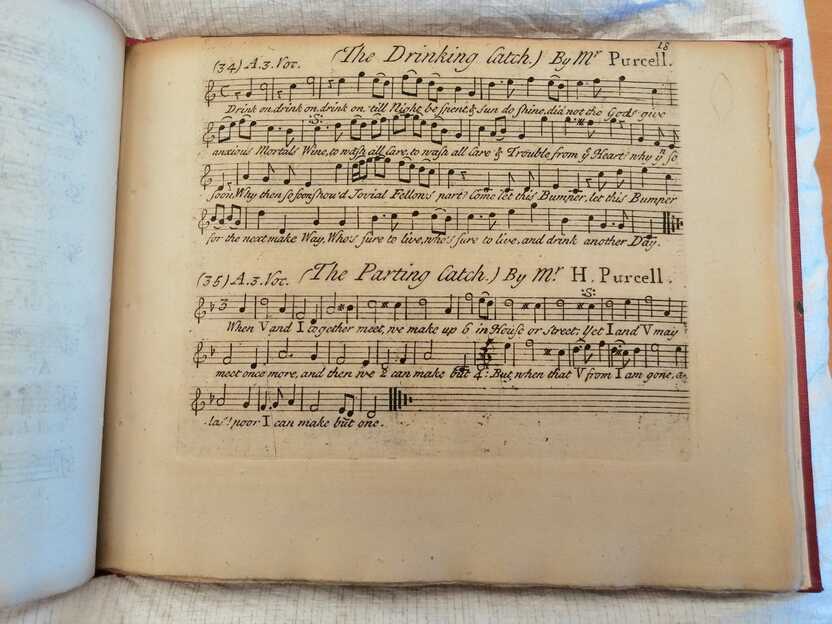 18
(34) A. 3. Voc. (The Drinking Catch.) By Mr Purcell.
Drink on, drink on, drink on, till Night be spent & Sun do shine, did not the Gods give
:S:
anxious Mortals Wine, to wash all Care, to wash all Care & Trouble from ye Heart? why yn so
soon, Why then so soon shou'd Jovial Fellows part? Come let this Bumper, let this Bumper
for the next make Way, Who's sure to live, who's sure to live, and drink another Day.
(35) A. 3. Voc. (The Parting Catch.) By Mr H. Purcell.
:S:
3
When V and I together meet, we make up 6 in House or Street; Yet I and V may
meet once more, and then we 2 can make but 4: But when that V from I am gone, a-
las! poor I can make but one.